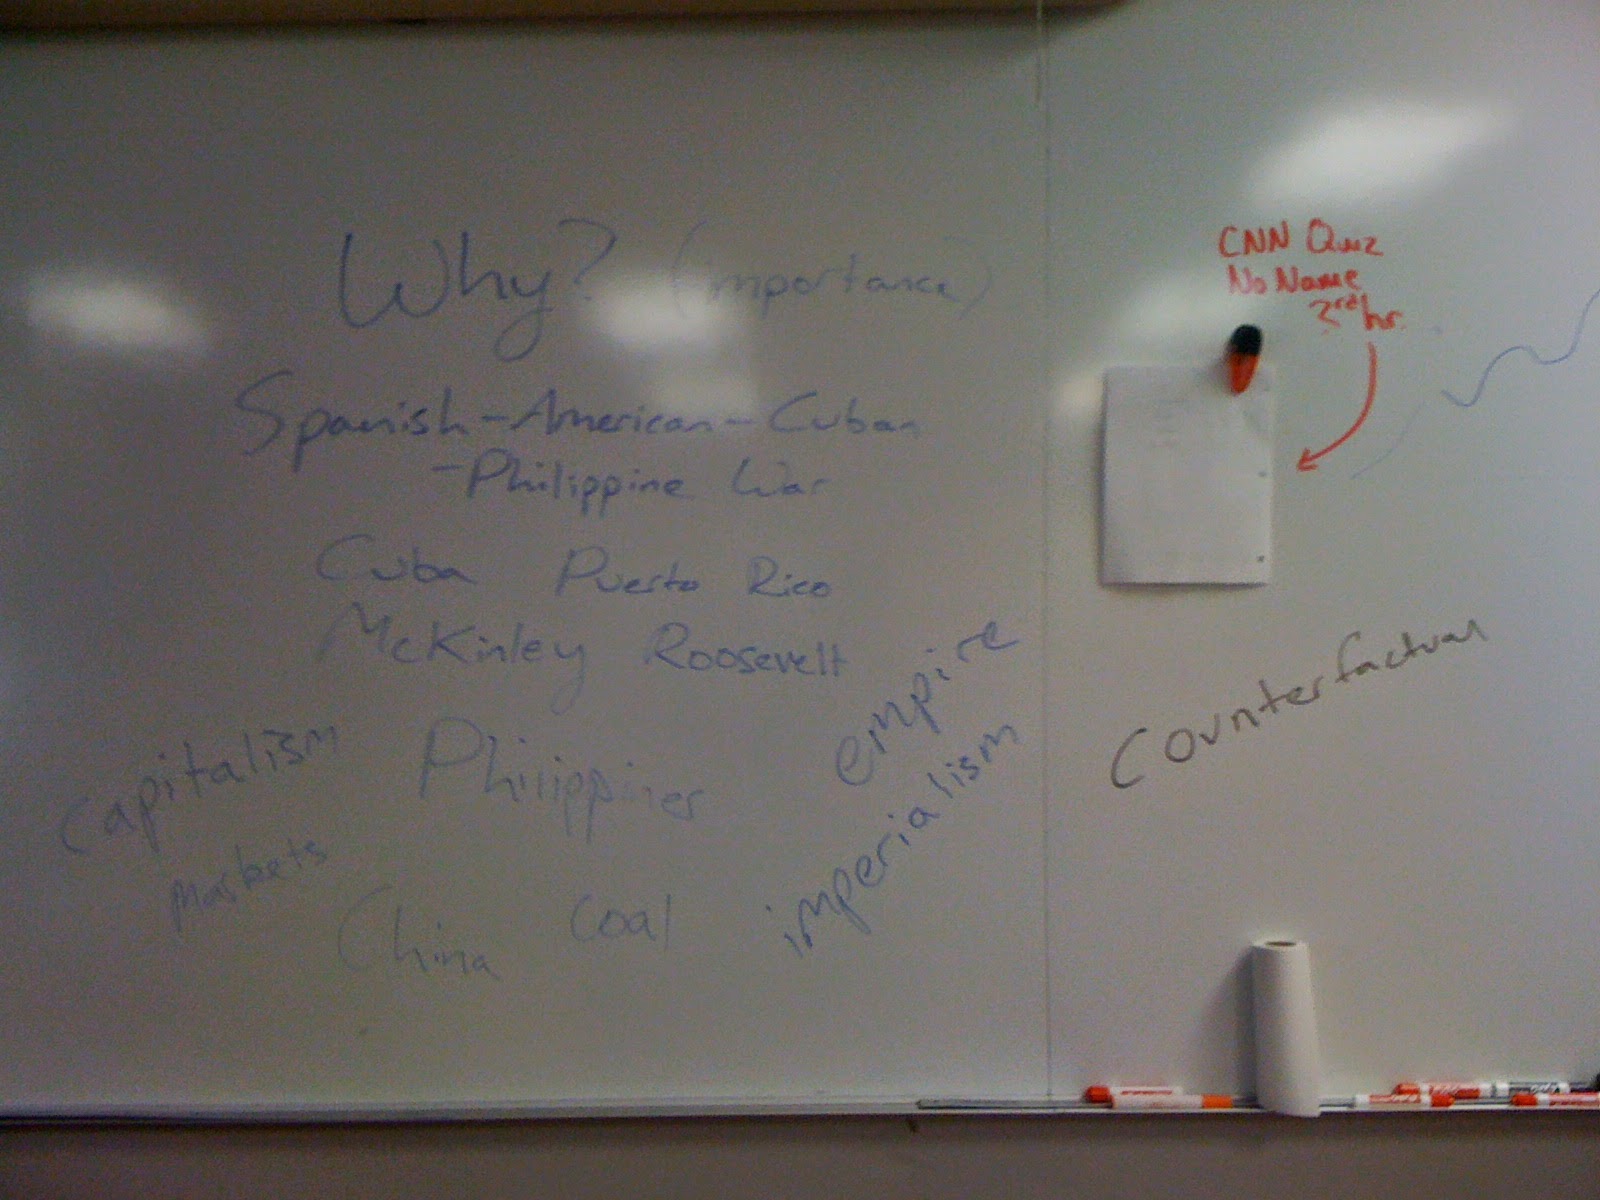 Why? (importance)
Spanish-American-Cuban
-Philippine War
Cuba Puerto Rico
McKinley Roosevelt
empire
imperialism
Capitalism
Philippines
Markets
China
coal
CNN Quiz
No Name
3rd hr.
Counterfactual